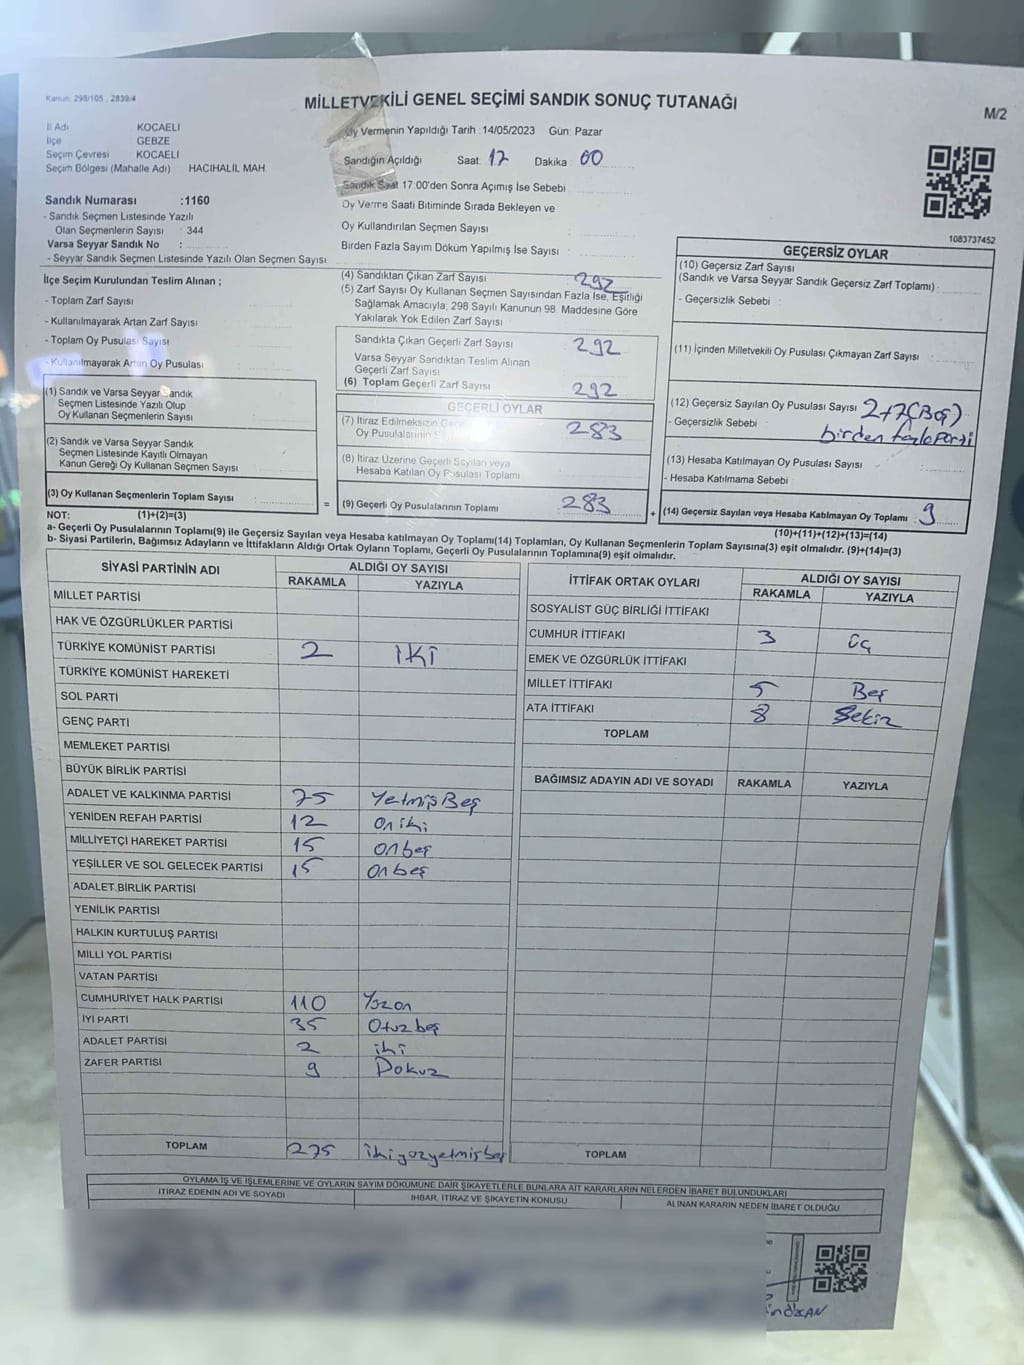 Kanun: 298/105 , 2839/4
MİLLETVEKİLİ GENEL SEÇİMİ SANDIK SONUÇ TUTANAĞI
M/2
İl Adı KOCAELİ
İlçe GEBZE
Seçim Çevresi KOCAELİ
Seçim Bölgesi (Mahalle Adı) HACIHALİL MAH
Sandık Numarası :1160
- Sandık Seçmen Listesinde Yazılı
Olan Seçmenlerin Sayısı : 344
Varsa Seyyar Sandık No :
- Seyyar Sandık Seçmen Listesinde Yazılı Olan Seçmen Sayısı
Oy Vermenin Yapıldığı Tarih :14/05/2023 Gün: Pazar
Sandığın Açıldığı Saat: 17 Dakika: 00
Sandık Saat 17:00'den Sonra Açımış İse Sebebi
Oy Verme Saati Bitiminde Sırada Bekleyen ve
Oy Kullandırılan Seçmen Sayısı :
Birden Fazla Sayım Döküm Yapılmış İse Sayısı :
1083737452
İlçe Seçim Kurulundan Teslim Alınan ;
- Toplam Zarf Sayısı
- Kullanılmayarak Artan Zarf Sayısı
- Toplam Oy Pusulası Sayısı
- Kullanılmayarak Artan Oy Pusulası
(1) Sandık ve Varsa Seyyar Sandık
Seçmen Listesinde Yazılı Olup
Oy Kullanan Seçmenlerin Sayısı
(2) Sandık ve Varsa Seyyar Sandık
Seçmen Listesinde Kayıtlı Olmayan
Kanun Gereği Oy Kullanan Seçmen Sayısı
(3) Oy Kullanan Seçmenlerin Toplam Sayısı : =
(4) Sandıktan Çıkan Zarf Sayısı 292
(5) Zarf Sayısı Oy Kullanan Seçmen Sayısından Fazla İse, Eşitliği
Sağlamak Amacıyla; 298 Sayılı Kanunun 98. Maddesine Göre
Yakılarak Yok Edilen Zarf Sayısı
Sandıkta Çıkan Geçerli Zarf Sayısı : 292
Varsa Seyyar Sandıktan Teslim Alınan
Geçerli Zarf Sayısı
(6) Toplam Geçerli Zarf Sayısı 292
GEÇERLİ OYLAR
(7) İtiraz Edilmeksizin
Oy Pusulalarının 283
(8) İtiraz Üzerine Geçerli Sayılan veya
Hesaba Katılan Oy Pusulası Toplamı
(9) Geçerli Oy Pusulalarının Toplamı : 283 +
GEÇERSİZ OYLAR
(10) Geçersiz Zarf Sayısı
(Sandık ve Varsa Seyyar Sandık Geçersiz Zarf Toplamı) :
- Geçersizlik Sebebi :
(11) İçinden Milletvekili Oy Pusulası Çıkmayan Zarf Sayısı :
(12) Geçersiz Sayılan Oy Pusulası Sayısı 2+7(Boş)
- Geçersizlik Sebebi birden fazla Parti
(13) Hesaba Katılmayan Oy Pusulası Sayısı :
- Hesaba Katılmama Sebebi
(14) Geçersiz Sayılan veya Hesaba Katılmayan Oy Toplamı : 9
NOT: (1)+(2)=(3)
(10)+(11)+(12)+(13)=(14)
a- Geçerli Oy Pusulalarının Toplamı(9) ile Geçersiz Sayılan veya Hesaba Katılmayan Oy Toplamı(14) Toplamları, Oy Kullanan Seçmenlerin Toplam Sayısına(3) eşit olmalıdır. (9)+(14)=(3)
b- Siyasi Partilerin, Bağımsız Adayların ve İttifakların Aldığı Ortak Oyların Toplamı, Geçerli Oy Pusulalarının Toplamına(9) eşit olmalıdır.
SİYASİ PARTİNİN ADI ALDIĞI OY SAYISI
RAKAMLA YAZIYLA
MİLLET PARTİSİ
HAK VE ÖZGÜRLÜKLER PARTİSİ
TÜRKİYE KOMÜNİST PARTİSİ 2 İKİ
TÜRKİYE KOMÜNİST HAREKETİ
SOL PARTİ
GENÇ PARTİ
MEMLEKET PARTİSİ
BÜYÜK BİRLİK PARTİSİ
ADALET VE KALKINMA PARTİSİ 75 YetmişBeş
YENİDEN REFAH PARTİSİ 12 on iki
MİLLİYETÇİ HAREKET PARTİSİ 15 onbeş
YEŞİLLER VE SOL GELECEK PARTİSİ 15 onbeş
ADALET BİRLİK PARTİSİ
YENİLİK PARTİSİ
HALKIN KURTULUŞ PARTİSİ
MİLLİ YOL PARTİSİ
VATAN PARTİSİ
CUMHURİYET HALK PARTİSİ 110 Yüzon
İYİ PARTİ 35 Otuzbeş
ADALET PARTİSİ 2 iki
ZAFER PARTİSİ 9 Dokuz
TOPLAM 275 ikiyüzyetmişbeş
İTTİFAK ORTAK OYLARI ALDIĞI OY SAYISI
RAKAMLA YAZIYLA
SOSYALİST GÜÇ BİRLİĞİ İTTİFAKI
CUMHUR İTTİFAKI 3 üç
EMEK VE ÖZGÜRLÜK İTTİFAKI
MİLLET İTTİFAKI 5 Beş
ATA İTTİFAKI 8 Sekiz
TOPLAM
BAĞIMSIZ ADAYIN ADI VE SOYADI RAKAMLA YAZIYLA
TOPLAM
OYLAMA İŞ VE İŞLEMLERİNE VE OYLARIN SAYIM DÖKÜMÜNE DAİR ŞİKAYETLERLE BUNLARA AİT KARARLARIN NELERDEN İBARET BULUNDUKLARI
İTİRAZ EDENİN ADI VE SOYADI İHBAR, İTİRAZ VE ŞİKAYETİN KONUSU ALINAN KARARIN NEDEN İBARET OLDUĞU